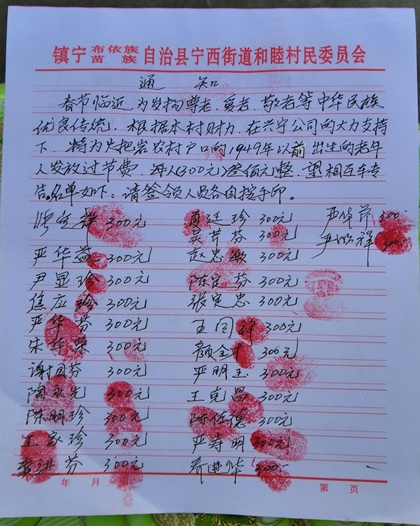 镇宁布依族苗族自治县宁西街道和睦村民委员会
通 知
春节临近,为发扬尊老、爱老、敬老等中华民族
优良传统。根据本村财力,在兴宁公司的大力支持
下,特为大把宏农村户口的1949年以前出生的老年
人发放过节费。每人(300元)叁佰元整。望相互车专
告。名单如下:请签领人员各自按手印。
300元 廷珍 300元 严华芹 300
吴芹芬 300元 祥 300
严华益 300元 赵忠敏 300元
尹显珍 300元 陈定芬 300元
伍应珍 300元 张定忠 300元
严华芬 300元 王国祥 300元
宋华荣 300元 颜全 300元
谢国芬 300元 严明玉 300元
陶永先 300元 王克昌 300元
陈明珍 300元 陈仕德 300元
王家珍 300元 严寿明 300元
进芬 300元 进华 300
年 月 第 页